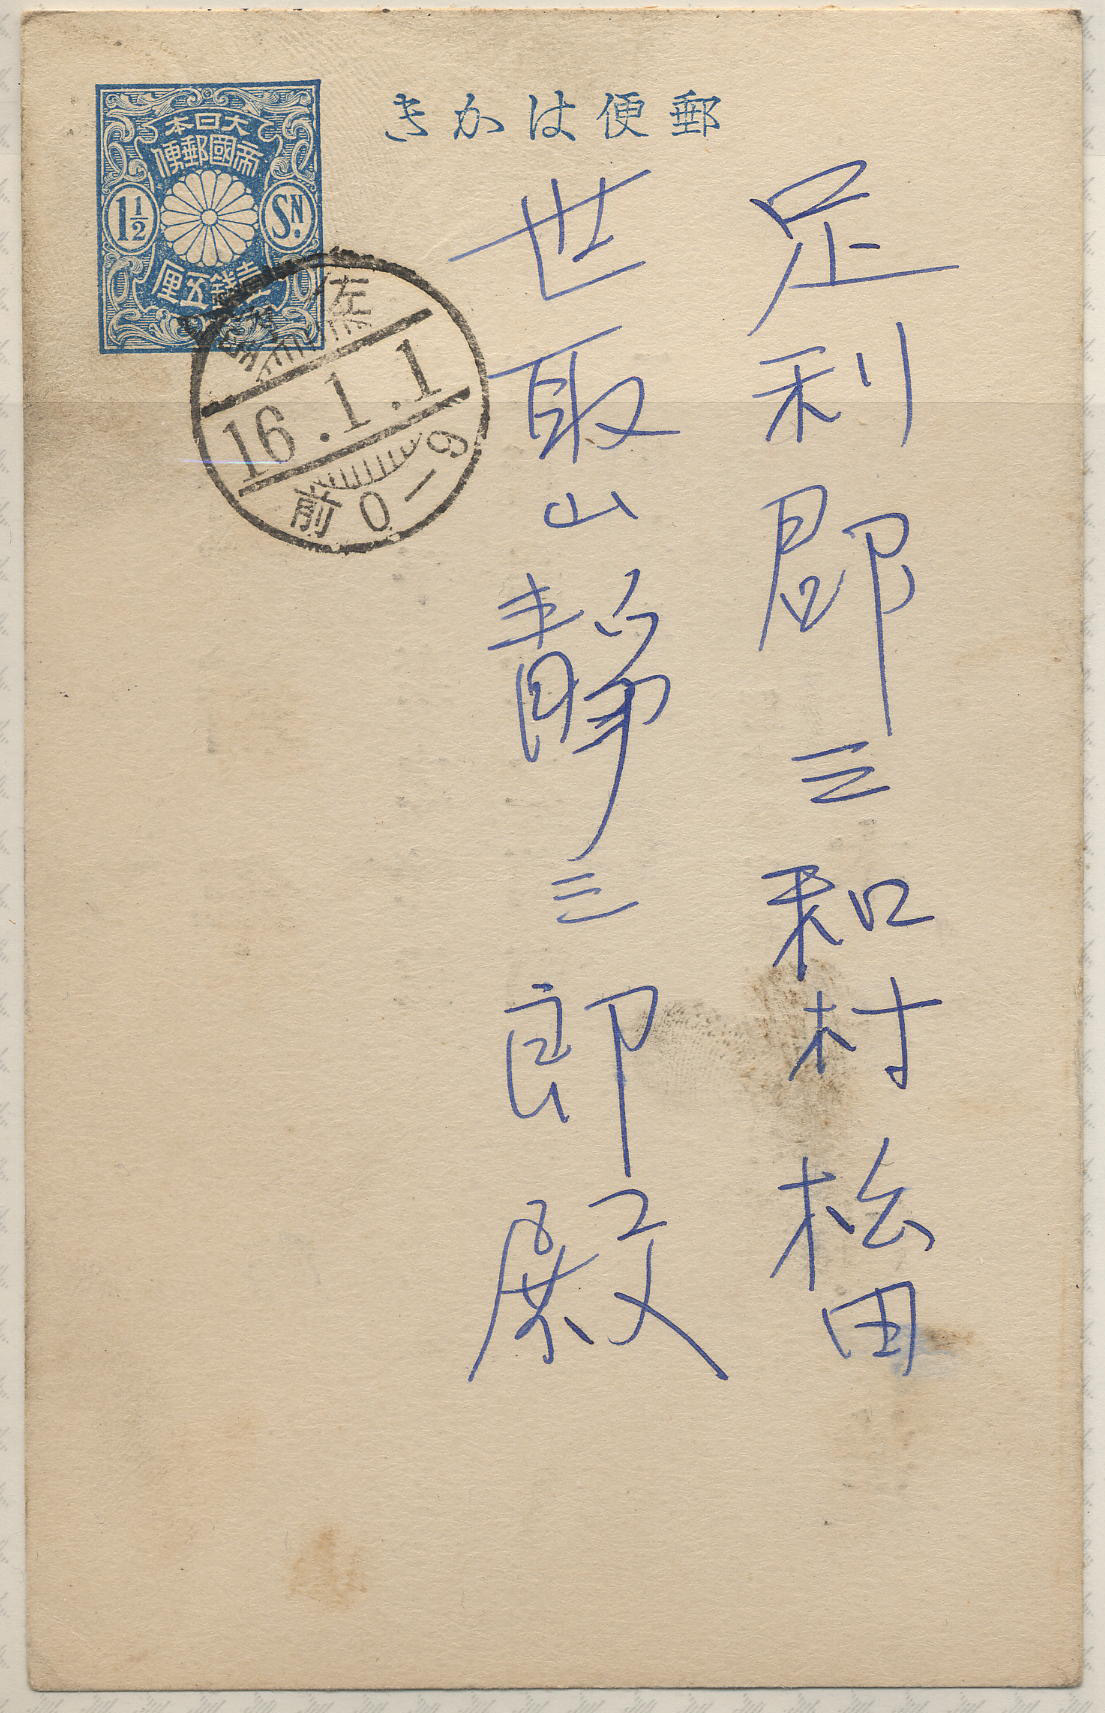 きかは便郵
本日大
便郵國帝
1½
SN.
厘五錢壹
佐
16.1.1
前0-9
足利郡三和村松田
世取山靜三郎殿